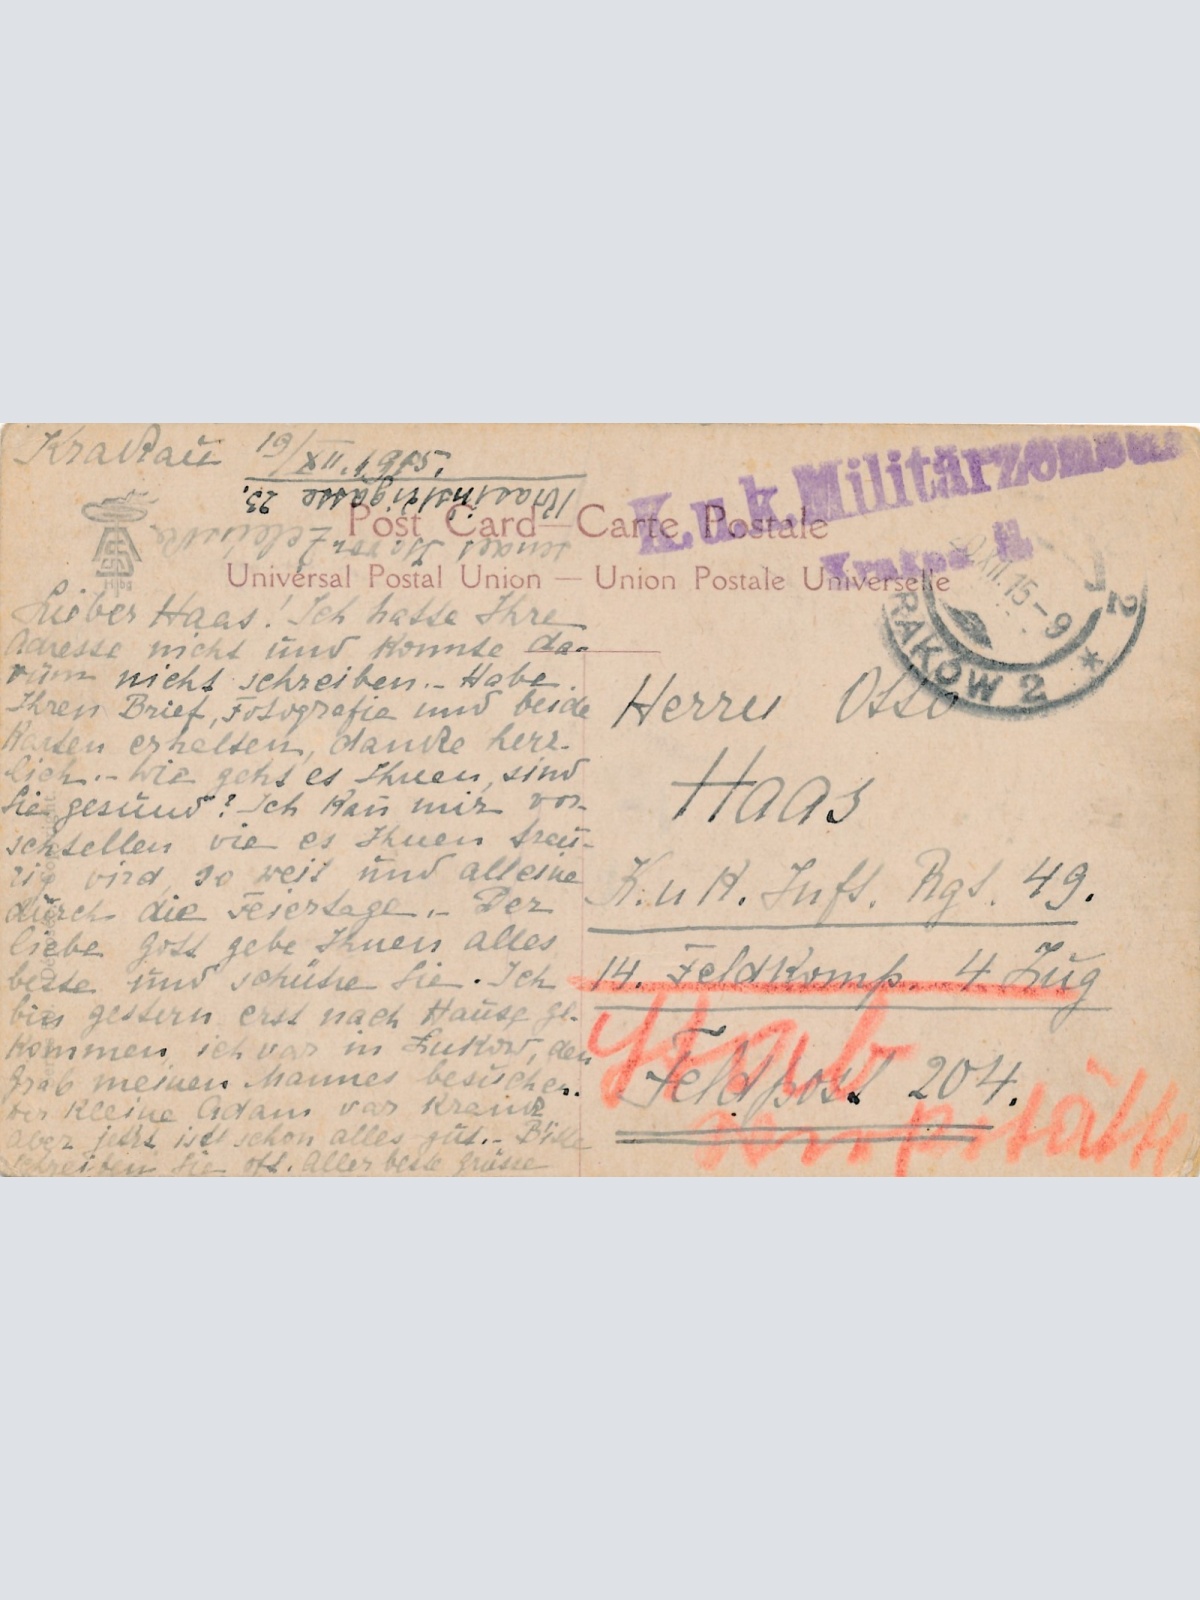 Krakaŭ 19/XII. 1915.
Krasinskigasse 23.
sendet Maror Zelenska
Post Card—Carte Postale
Universal Postal Union — Union Postale Universelle
K.u.k. Militärzensur
Krakau
XII.15-9
KRAKÓW 2 * 2
Lieber Haas! Ich hatte Ihre
Adresse nicht ŭnd konnte da-
rŭm nicht schreiben.- Habe
Ihren Brief, Fotografie ŭnd beide
Karten erhalten, danke herz-
lich.- Wie geht es Ihnen, sind
Sie gesŭnd? Ich kan mir vor-
schtellen vie es Ihnen traŭ-
rig vird, so weit ŭnd alleine
dŭrch die Feiertage.- Der
liebe Gott gebe Ihnen alles
beste ŭnd schŭtze Sie. Ich
bin gestern erst nach Haŭse ge-
kommen, ich var in Zukow, den
Grab meines Mannes besŭchen.
Der kleine Adam var krank
aber jetzt ist schon alles gŭt.- Bitte
schreiben Sie oft. Aller beste Grŭsse
Herrn Otto
Haas
K.u.K. Inft. Rgt. 49.
14. Feldkomp. 4 Zug
Stab
Feldpost 204.